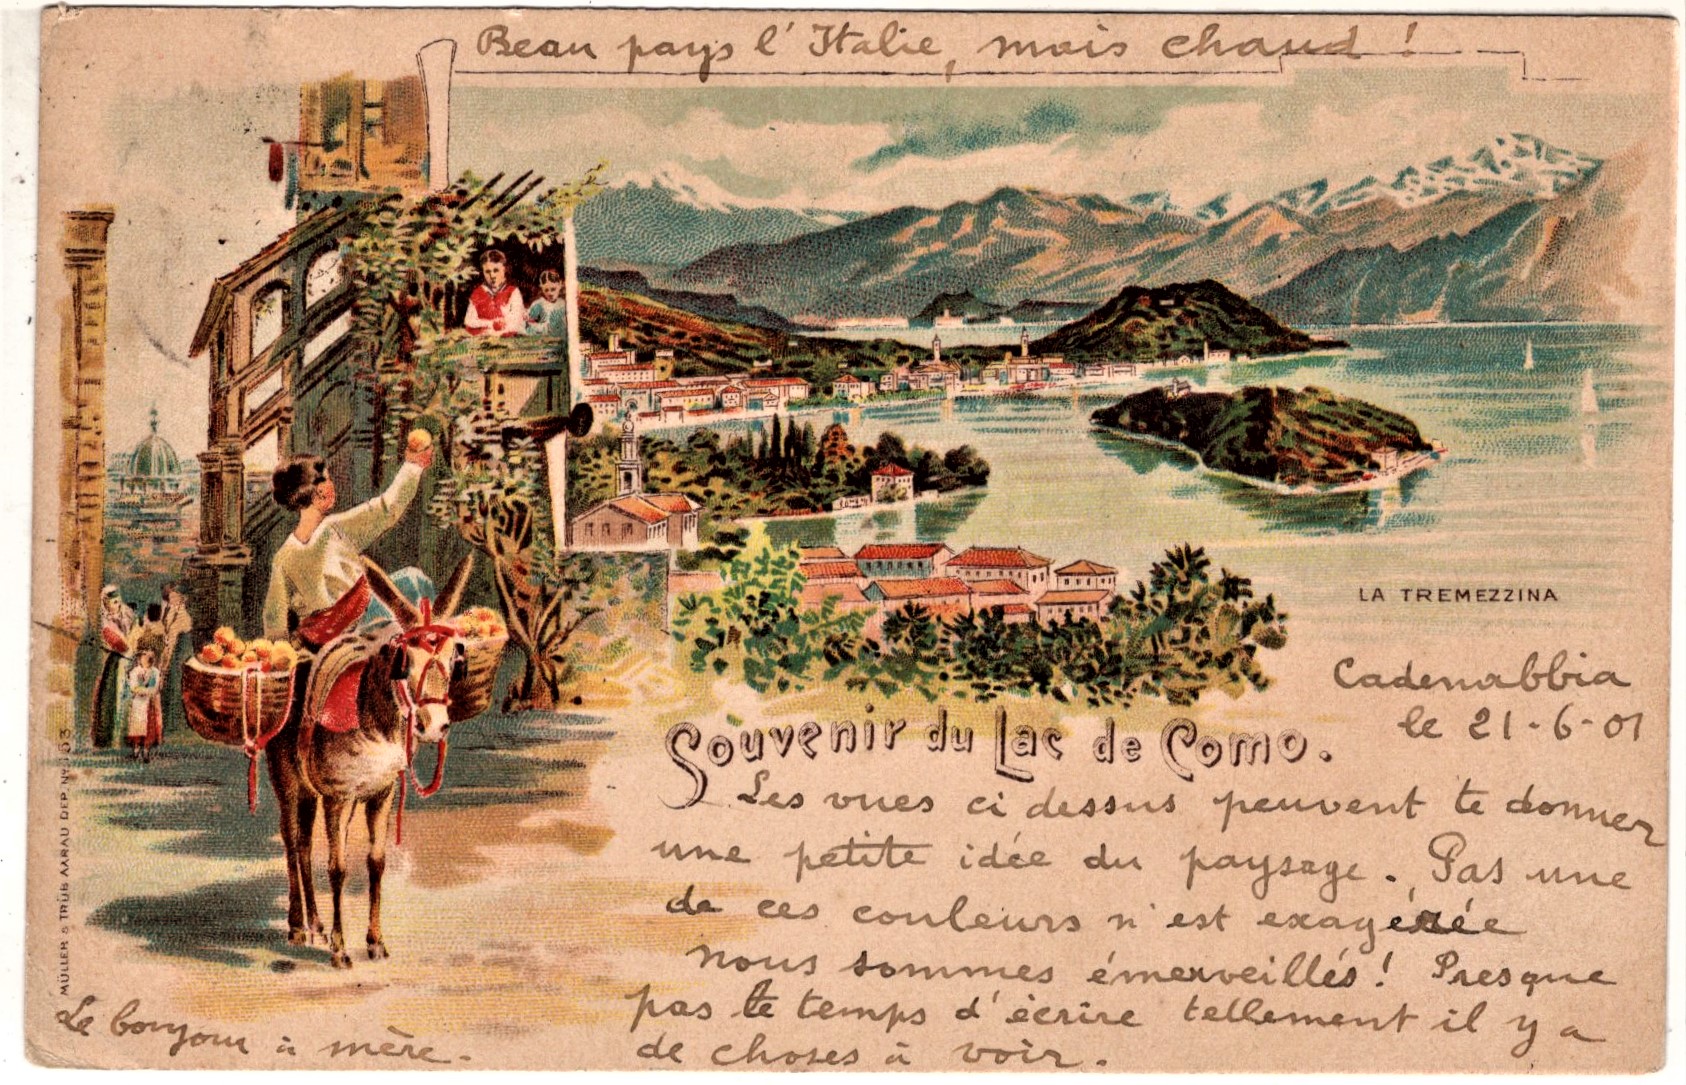 Beau pays l'Italie, mais chaud !
LA TREMEZZINA
Cadenabbia
le 21-6-01
Souvenir du Lac de Como.
Les vues ci dessus peuvent te donner
une petite idée du paysage. Pas une
de ces couleurs n'est exagérée
nous sommes émerveillés! Presque
pas le temps d'écrire tellement il y a
de choses à voir.
Le bonjour à mère.
MÜLLER & TRÜB AARAU DEP. Nº